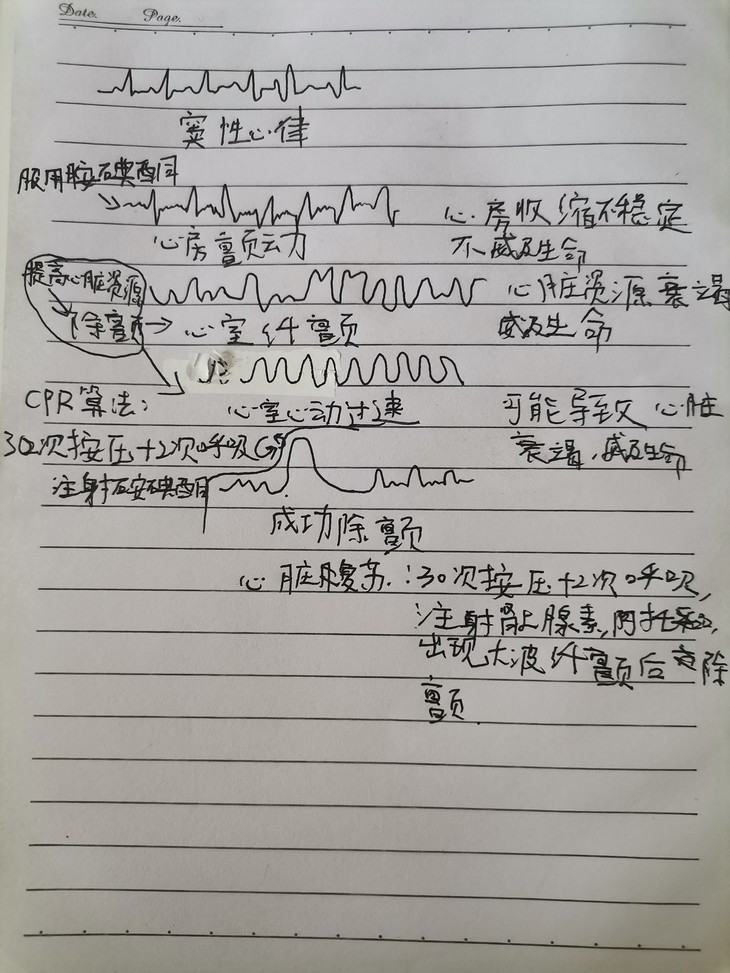 Date. Page.
窦性心律
服用胺碘酮
心房收缩不稳定
心房颤动
不威及生命
提高心脏资源
心脏资源衰竭
除颤
心室纤颤
威及生命
CPR算法:
心室心动过速
可能导致心脏
30次按压+2次呼吸
衰竭,威及生命
注射胺碘酮
成功除颤
心脏腹苏:30次按压+2次呼吸,
注射肾上腺素,阿托品,
出现大波纤颤后立除
颤.